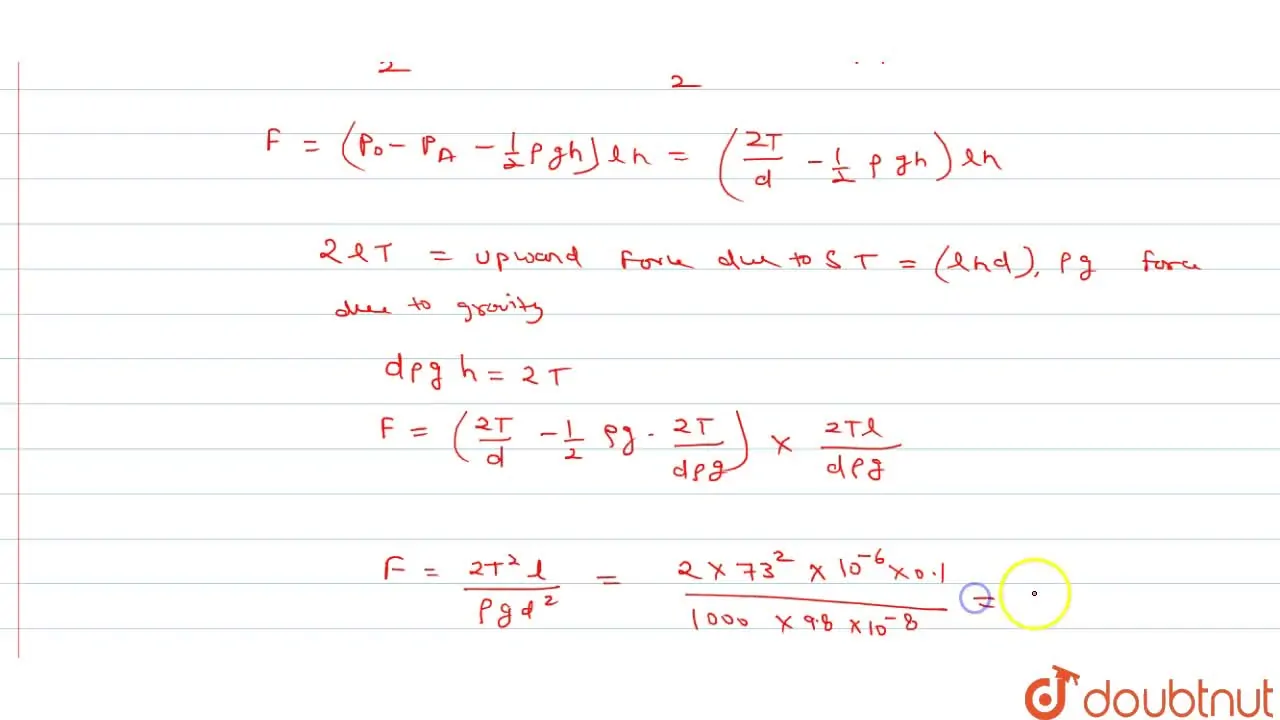 2 2
F = (P0 - PA - 1/2 ρgh) lh = (2T/d - 1/2 ρgh) lh
2lT = upward force due to S T = (lhd), ρg force
due to gravity
dρgh = 2T
F = (2T/d - 1/2 ρg · 2T/dρg) × 2Tl/dρg
F = 2T²l/ρgd² = 2 × 73² × 10⁻⁶ × 0.1/1000 × 9.8 × 10⁻⁸ =
doubtnut